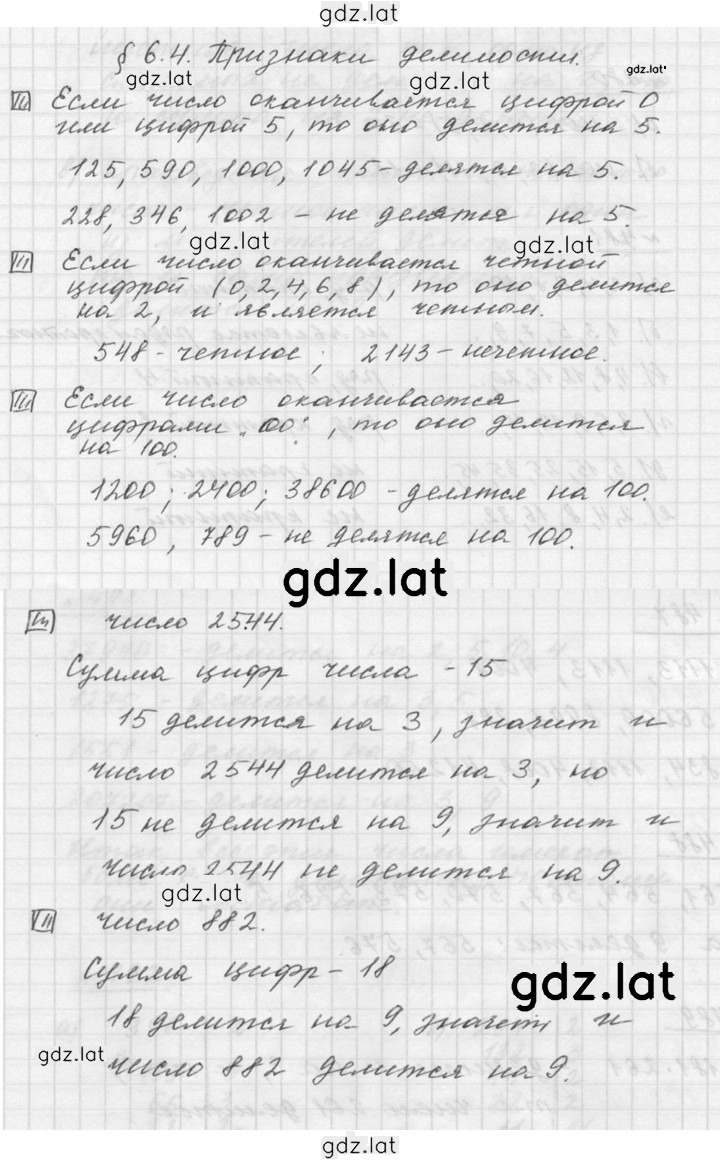 gdz.lat
§ 6.4. Признаки делимости.
gdz.lat gdz.lat gdz.lat
Если число оканчивается цифрой 0
или цифрой 5, то оно делится на 5.
125, 590, 1000, 1045 - делятся на 5.
228, 346, 1002 - не делятся на 5.
gdz.lat gdz.lat
Если число оканчивается четной
цифрой (0,2,4,6,8), то оно делится
на 2, и является четным.
548 - четное; 2143 - нечетное.
Если число оканчивается
цифрами "00", то оно делится
на 100.
1200; 2400; 38600 - делятся на 100.
5960, 789 - не делятся на 100.
gdz.lat
число 2544.
Сумма цифр числа - 15
15 делится на 3, значит и
число 2544 делится на 3, но
15 не делится на 9, значит и
число 2544 не делится на 9.
gdz.lat
число 882.
Сумма цифр - 18
gdz.lat
18 делится на 9, значит и
gdz.lat
число 882 делится на 9.
gdz.lat